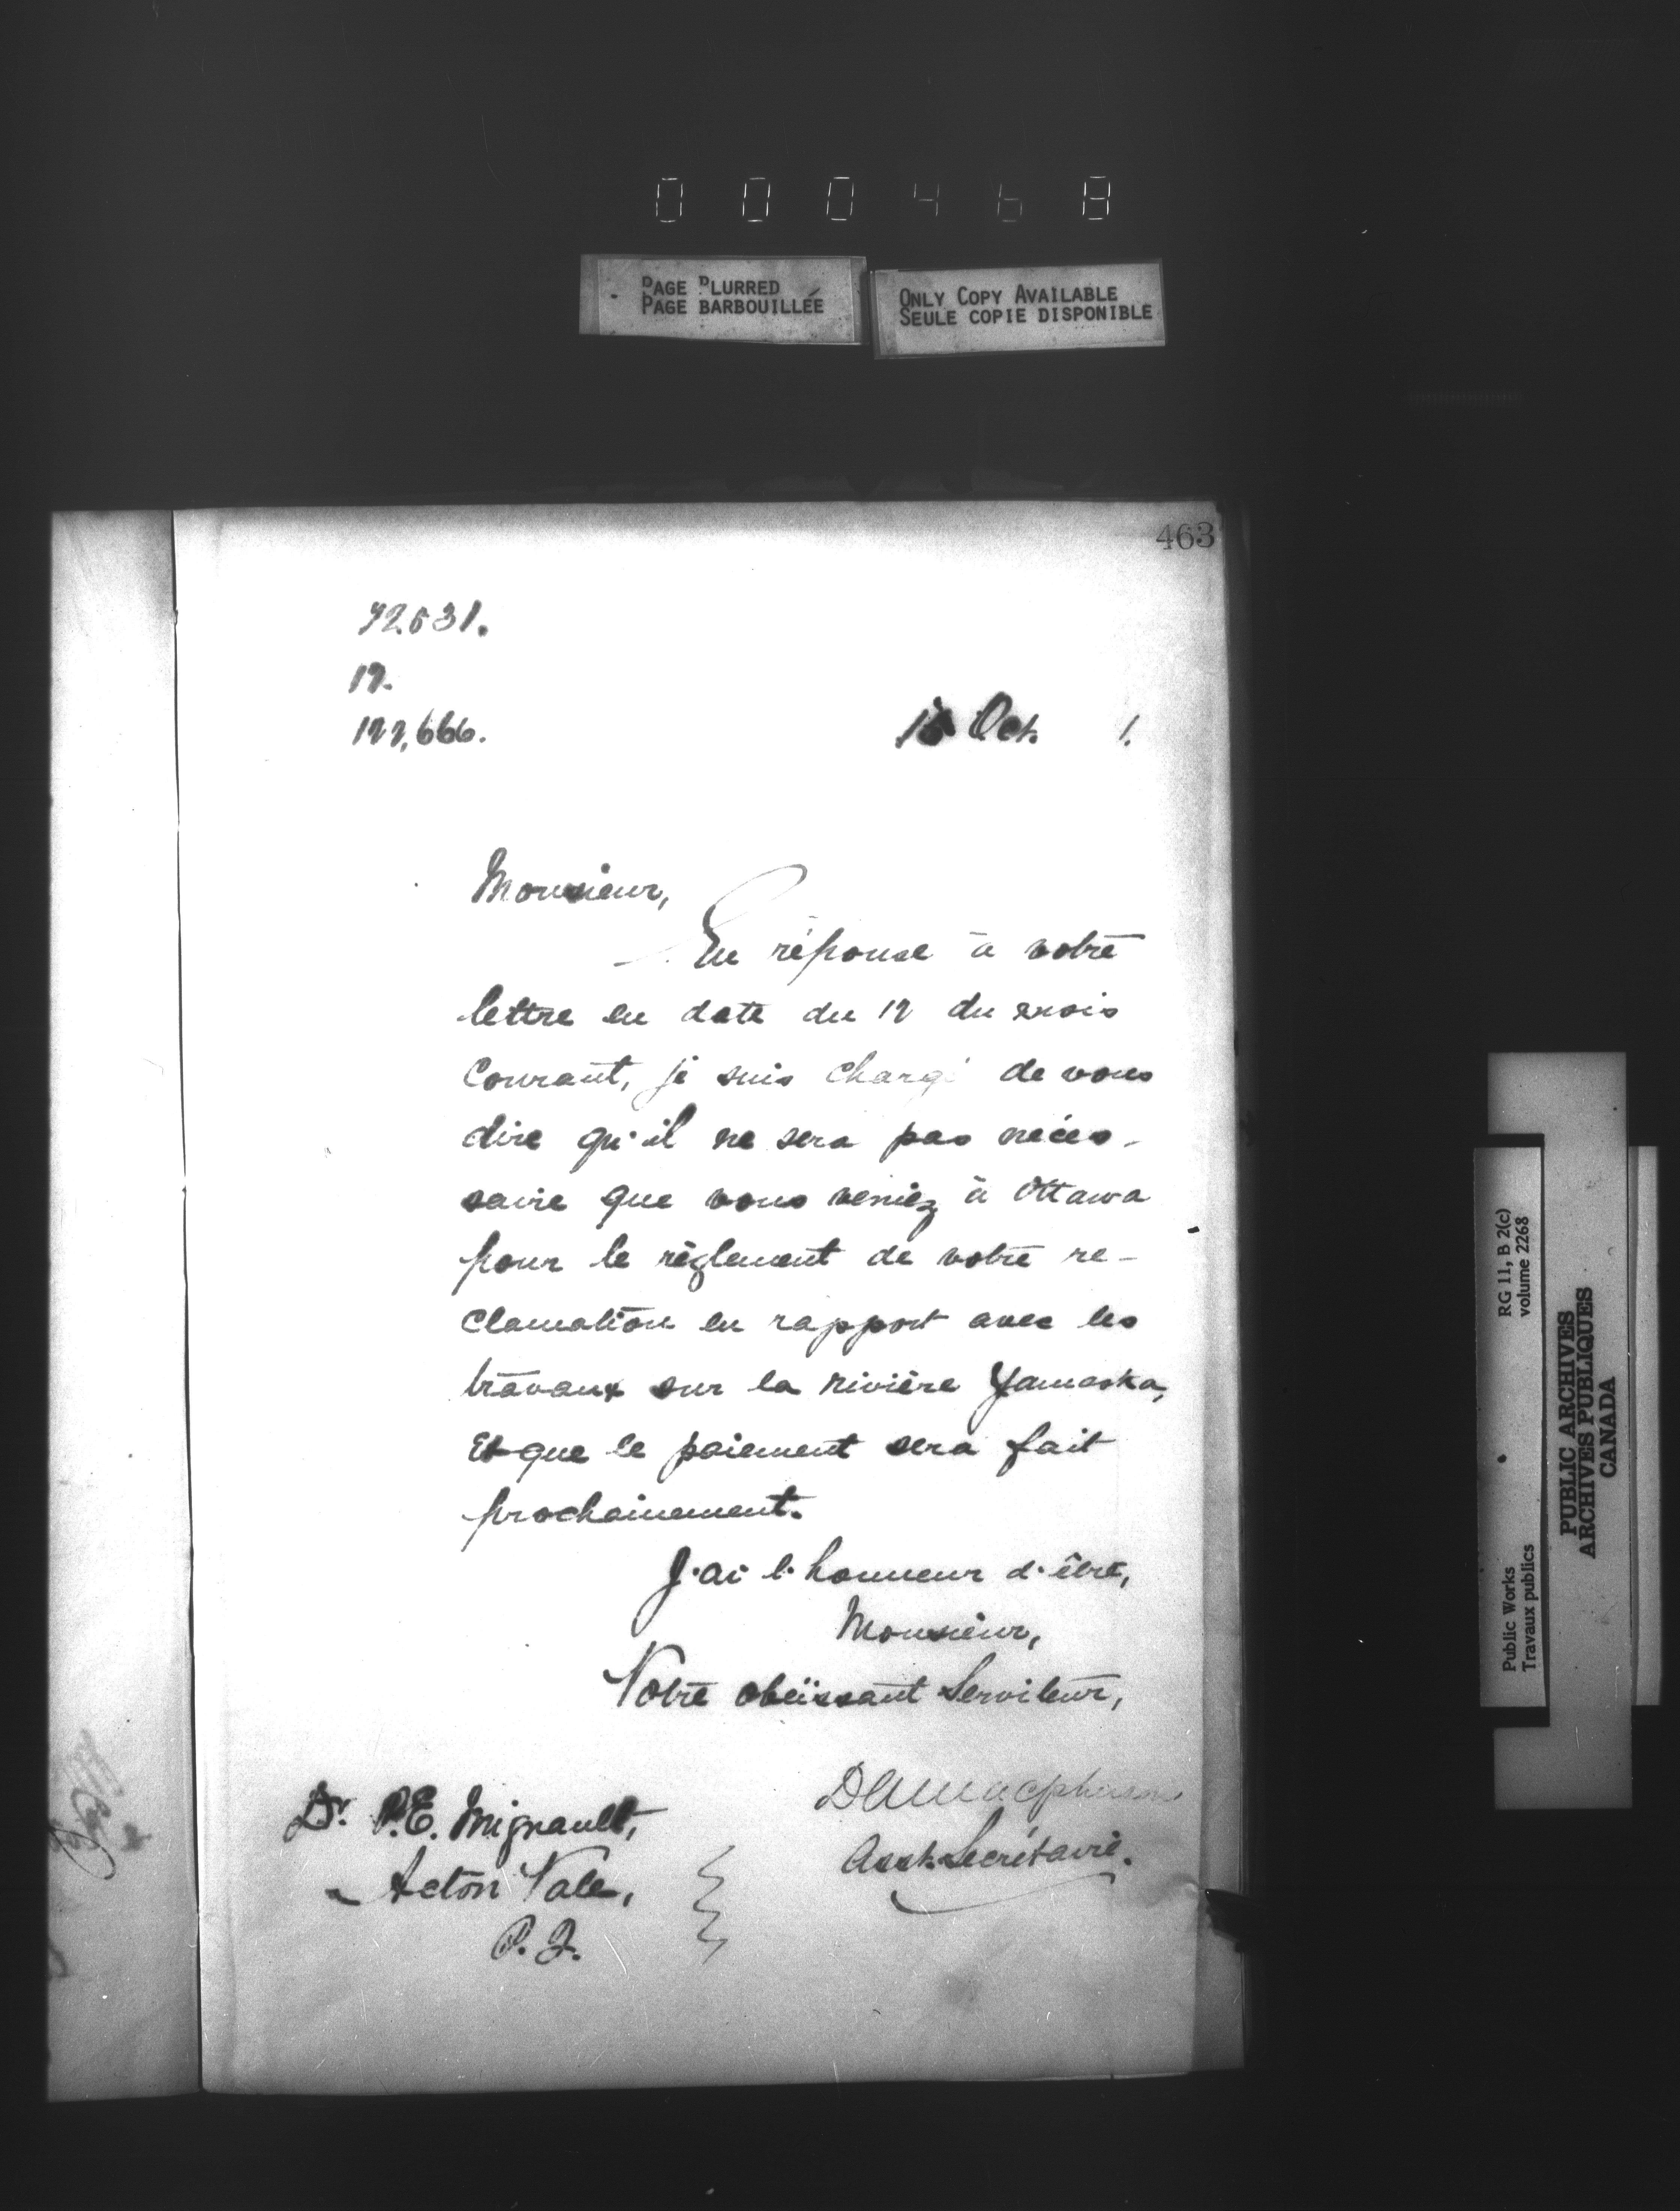 000468
PAGE BLURRED
PAGE BARBOUILLÉE
ONLY COPY AVAILABLE
SEULE COPIE DISPONIBLE
463
122,666.
Oct. 1.
Monsieur,
En réponse à votre
lettre en date du 12 du mois
courant, je suis chargé de vous
dire qu'il ne sera pas néces-
saire que vous veniez à Ottawa
pour le règlement de votre re-
clamation en rapport avec les
travaux sur la rivière Yamaska,
et que le paiement sera fait
prochainement.
J'ai l'honneur d'être,
Monsieur,
Votre obéissant Serviteur,
DAMacpherson
Asst. Secrétaire.
Dr. P.E. Mignault,
Acton Vale,
P. Q.
RG 11, B 2(c)
volume 2268
Public Works
Travaux publics
PUBLIC ARCHIVES
ARCHIVES PUBLIQUES
CANADA